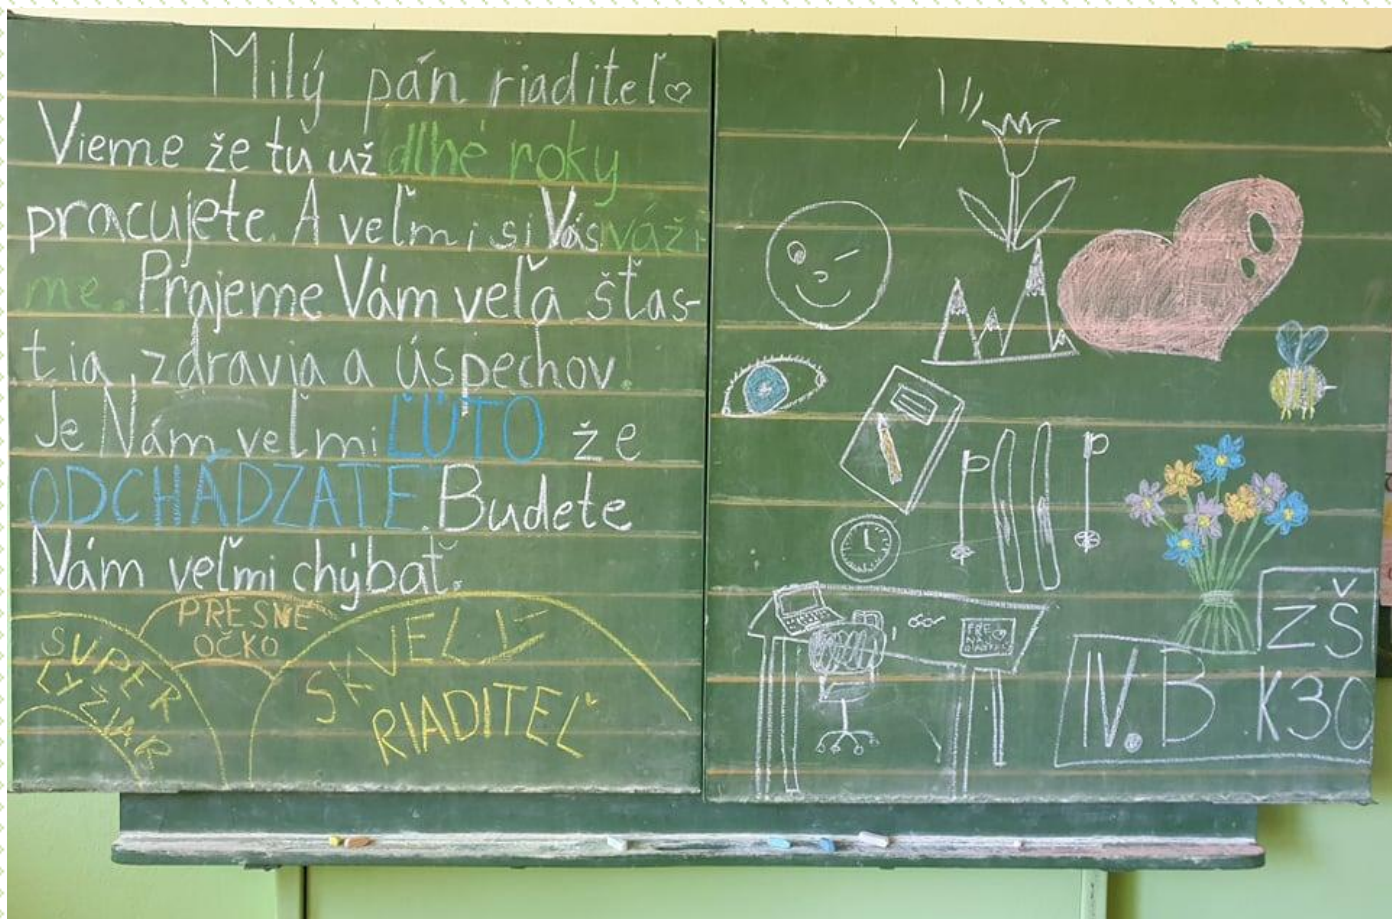 Milý pán riaditeľ♡
Vieme že tu už dlhé roky
pracujete. A veľmi si Vás váži-
me. Prajeme Vám veľa šťas-
tia, zdravia a úspechov.
Je Nám veľmi ĽÚTO že
ODCHÁDZATE. Budete
Nám veľmi chýbať.
PRESNÉ
OČKO
SUPER
LYŽIAR
SKVELÝ
RIADITEĽ
PRE
NÁŠ
ZŠ
IV. B K30